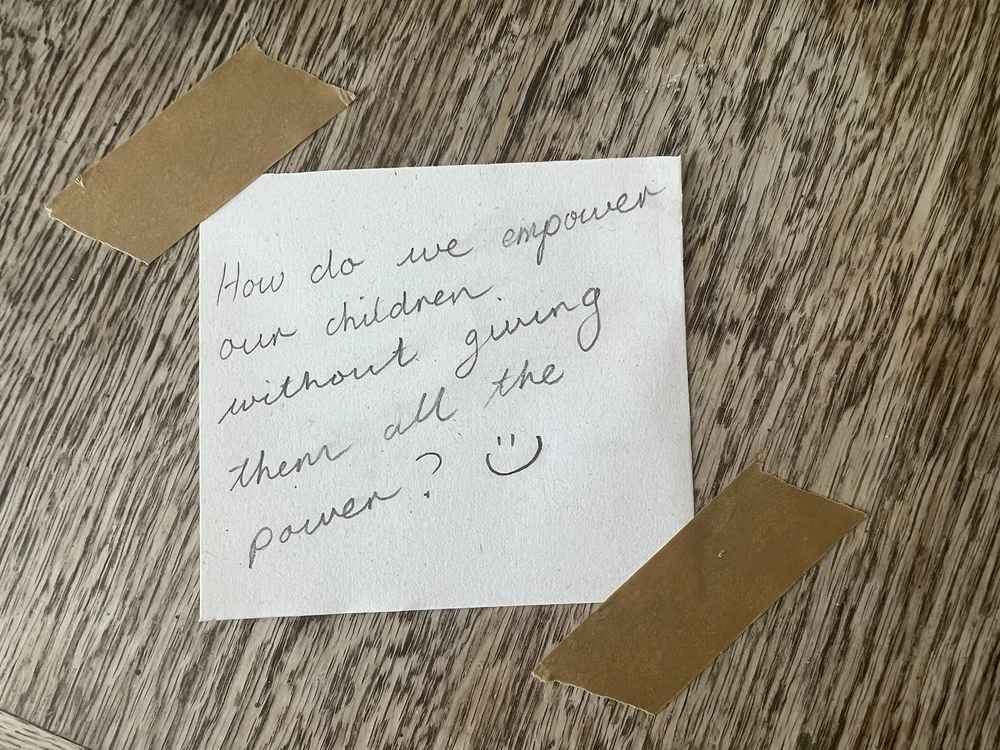 How do we empower
our children
without giving
them all the
power?